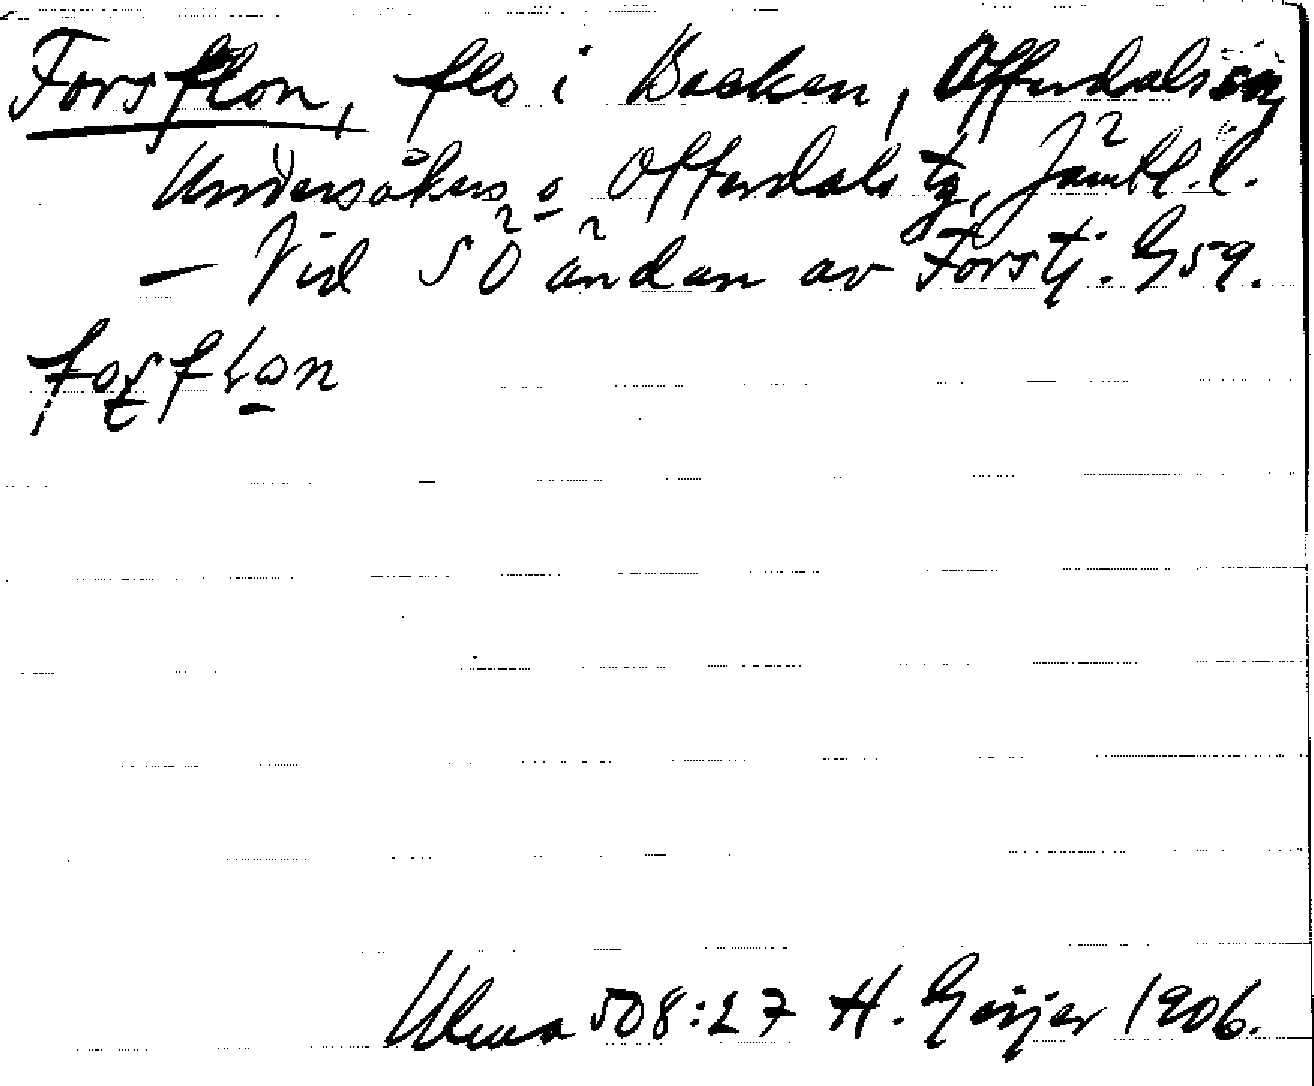 Forsflon, flo i Backen, Offerdals sn,
Undersåkers o Offerdals tg, Jämtl. l.
— Vid SÖ ändan av Forstj. G59.
fors flon
Ulma 508:27 H. Geijer 1906.